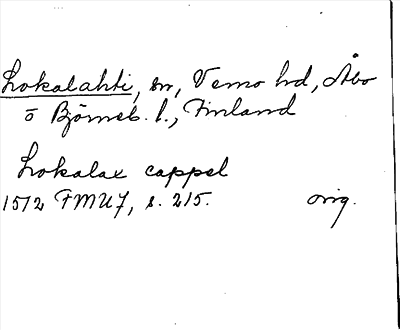 Lokalahti, sn, Vemo hd, Åbo
o Björneb. l., Finland
Lokalax cappel
1512 FMU 7, s. 215. orig.